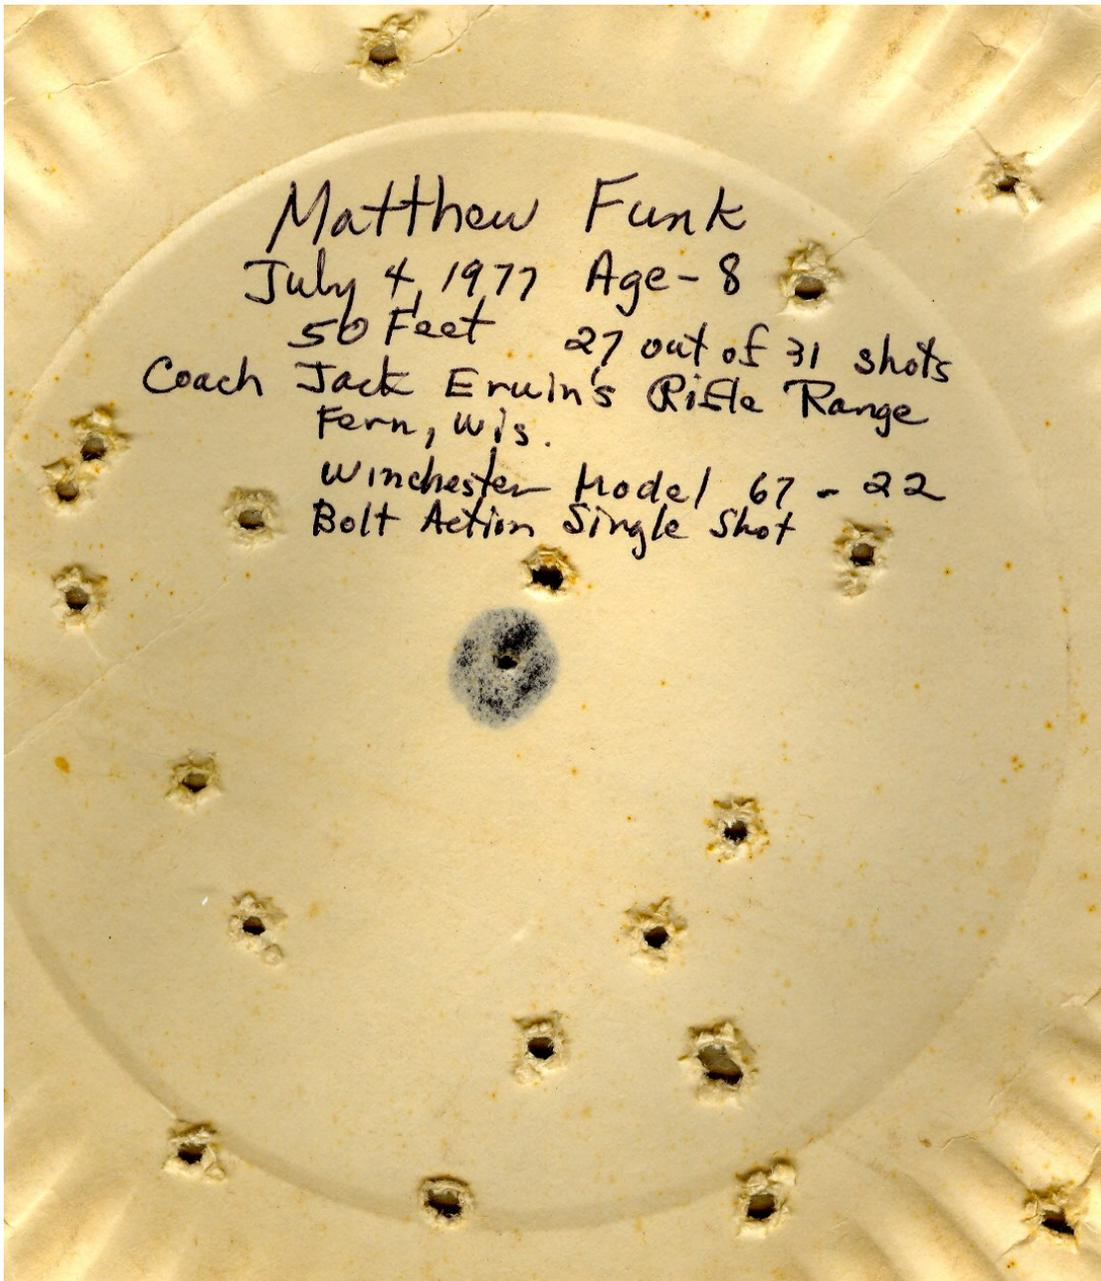 Matthew Funk
July 4, 1977 Age-8
50 Feet 27 out of 31 shots
Coach Jack Erwin's Rifle Range
Fern, Wis.
Winchester Model 67-22
Bolt Action Single Shot